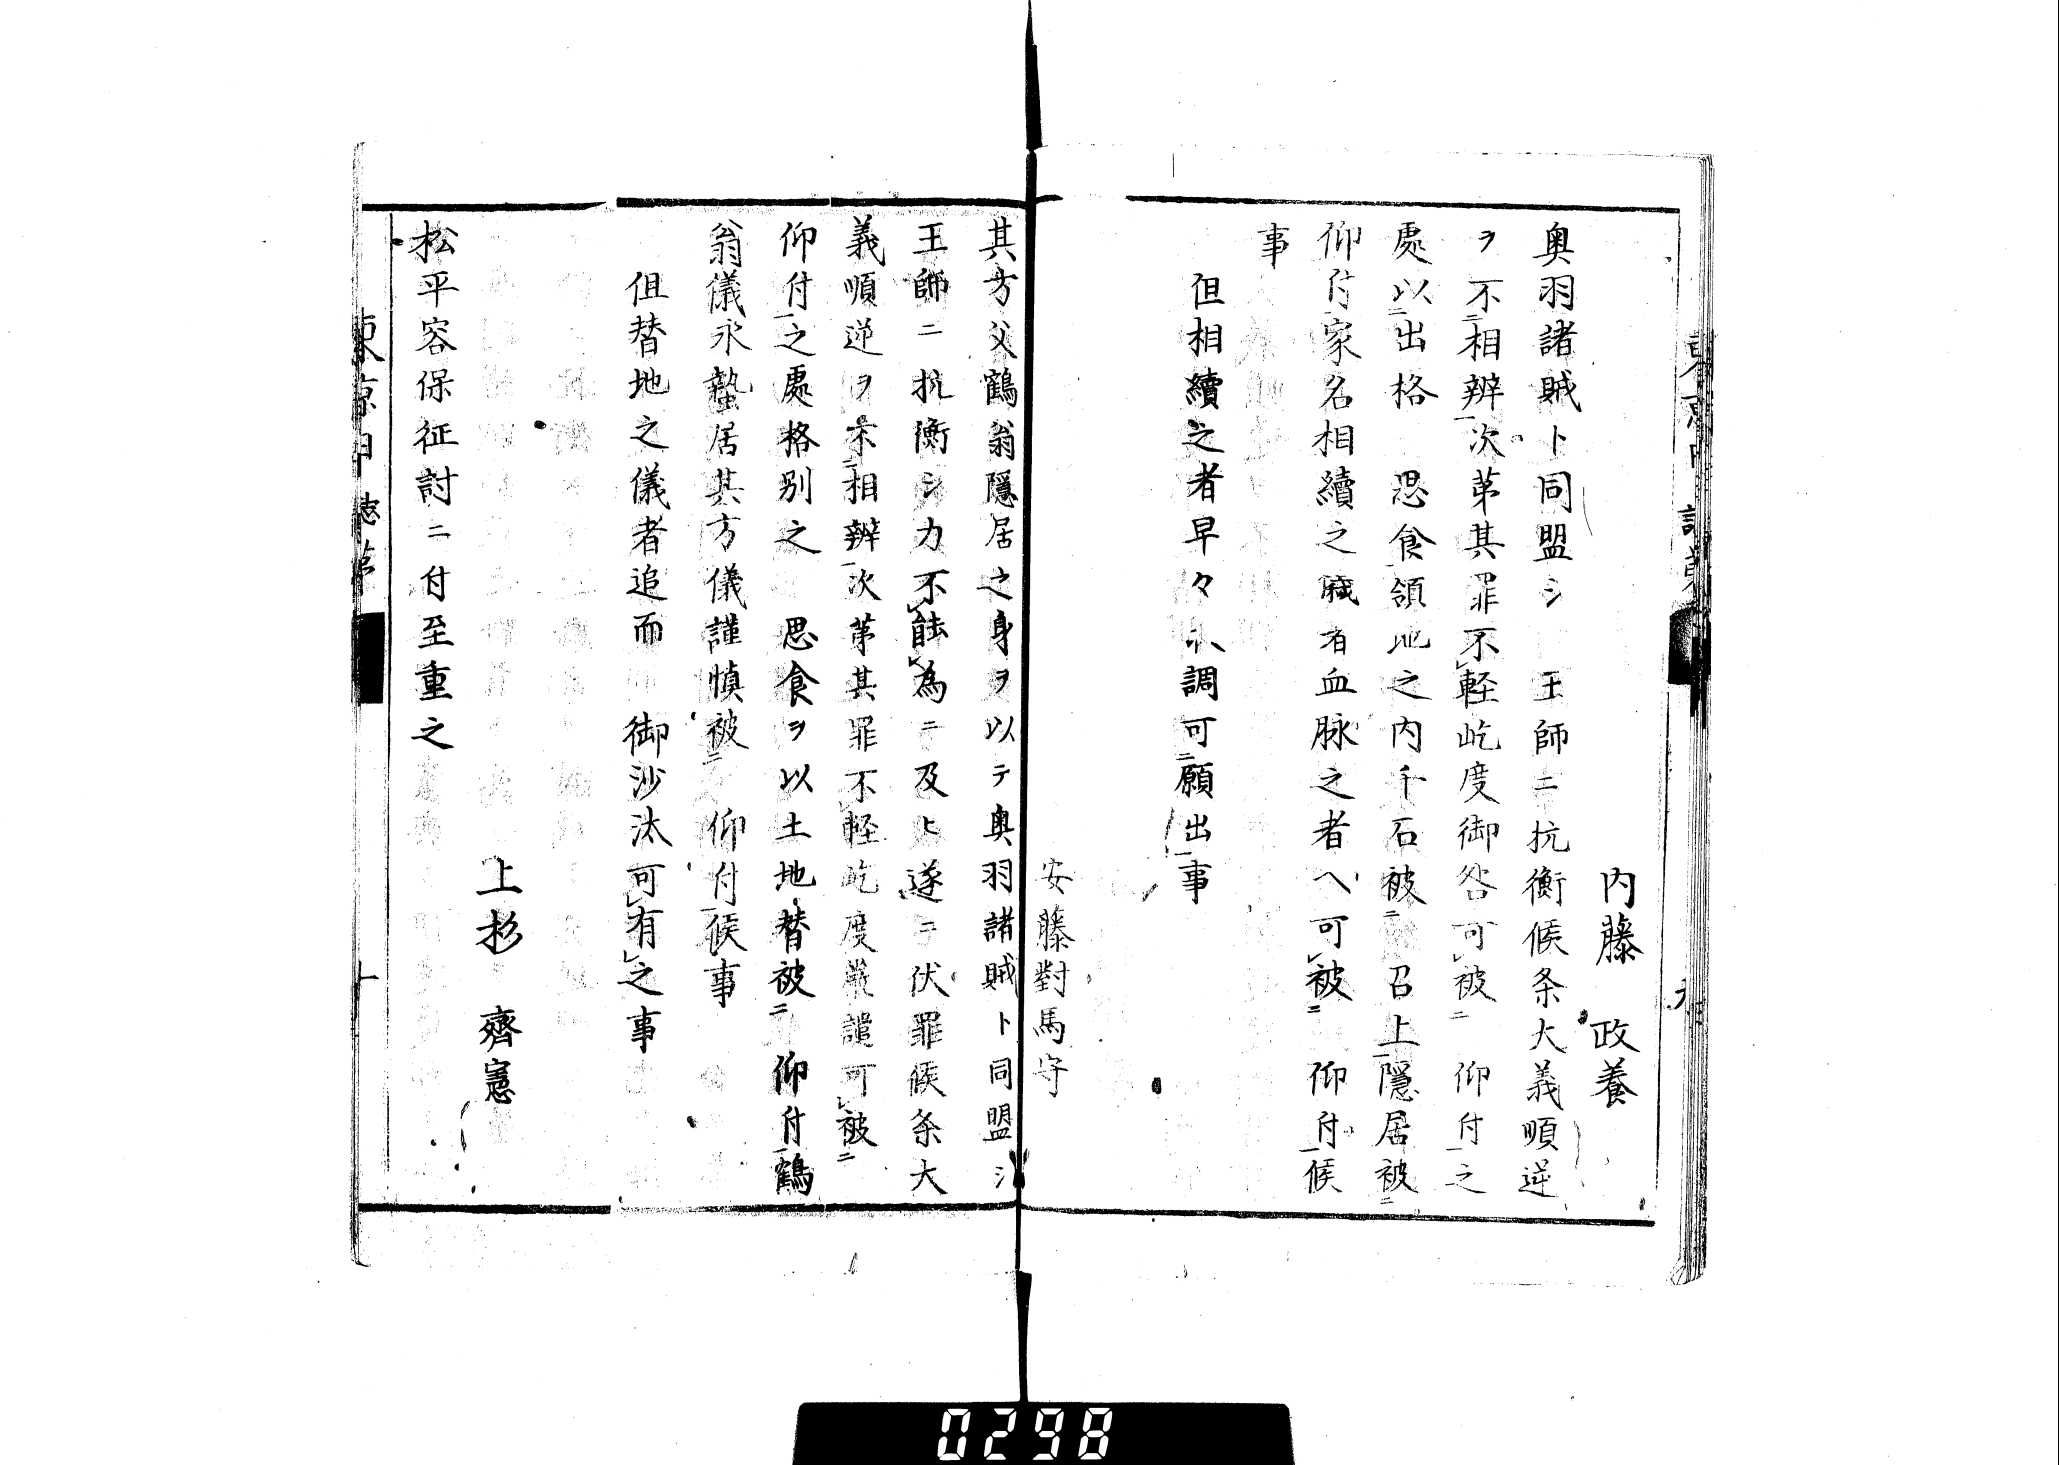 内藤 政養
奥羽諸賊ト同盟シ 王師ニ抗衡候条大義順逆
ヲ不㆓相辨㆒次第其罪不㆑軽屹度御咎可㆑被㆓ 仰付㆒之
處以㆓出格 思食㆒領地之内千石被㆓ 召上㆒隠居被㆓
仰付㆒家名相續之儀者血脉之者ヘ可㆑被㆓ 仰付㆒候
事
但相續之者早々取調可㆓願出㆒事
安藤對馬守
其方父鶴翁隠居之身ヲ以テ奥羽諸賊ト同盟シ
王師ニ抗衡シ力不㆑能㆑為ニ及ヒ遂ニ伏罪候条大
義順逆ヲ不㆓相辨㆒次第其罪不㆑軽屹度嚴譴可㆑被㆓
仰付㆒之處格別之 思食ヲ以土地替被㆓ 仰付㆒鶴
翁儀永蟄居其方儀謹慎被㆓ 仰付㆒候事
但替地之儀者追而 御沙汰可㆑有㆑之事
上杉 齊憲
松平容保征討ニ付至重之
東京日誌第
十
0298